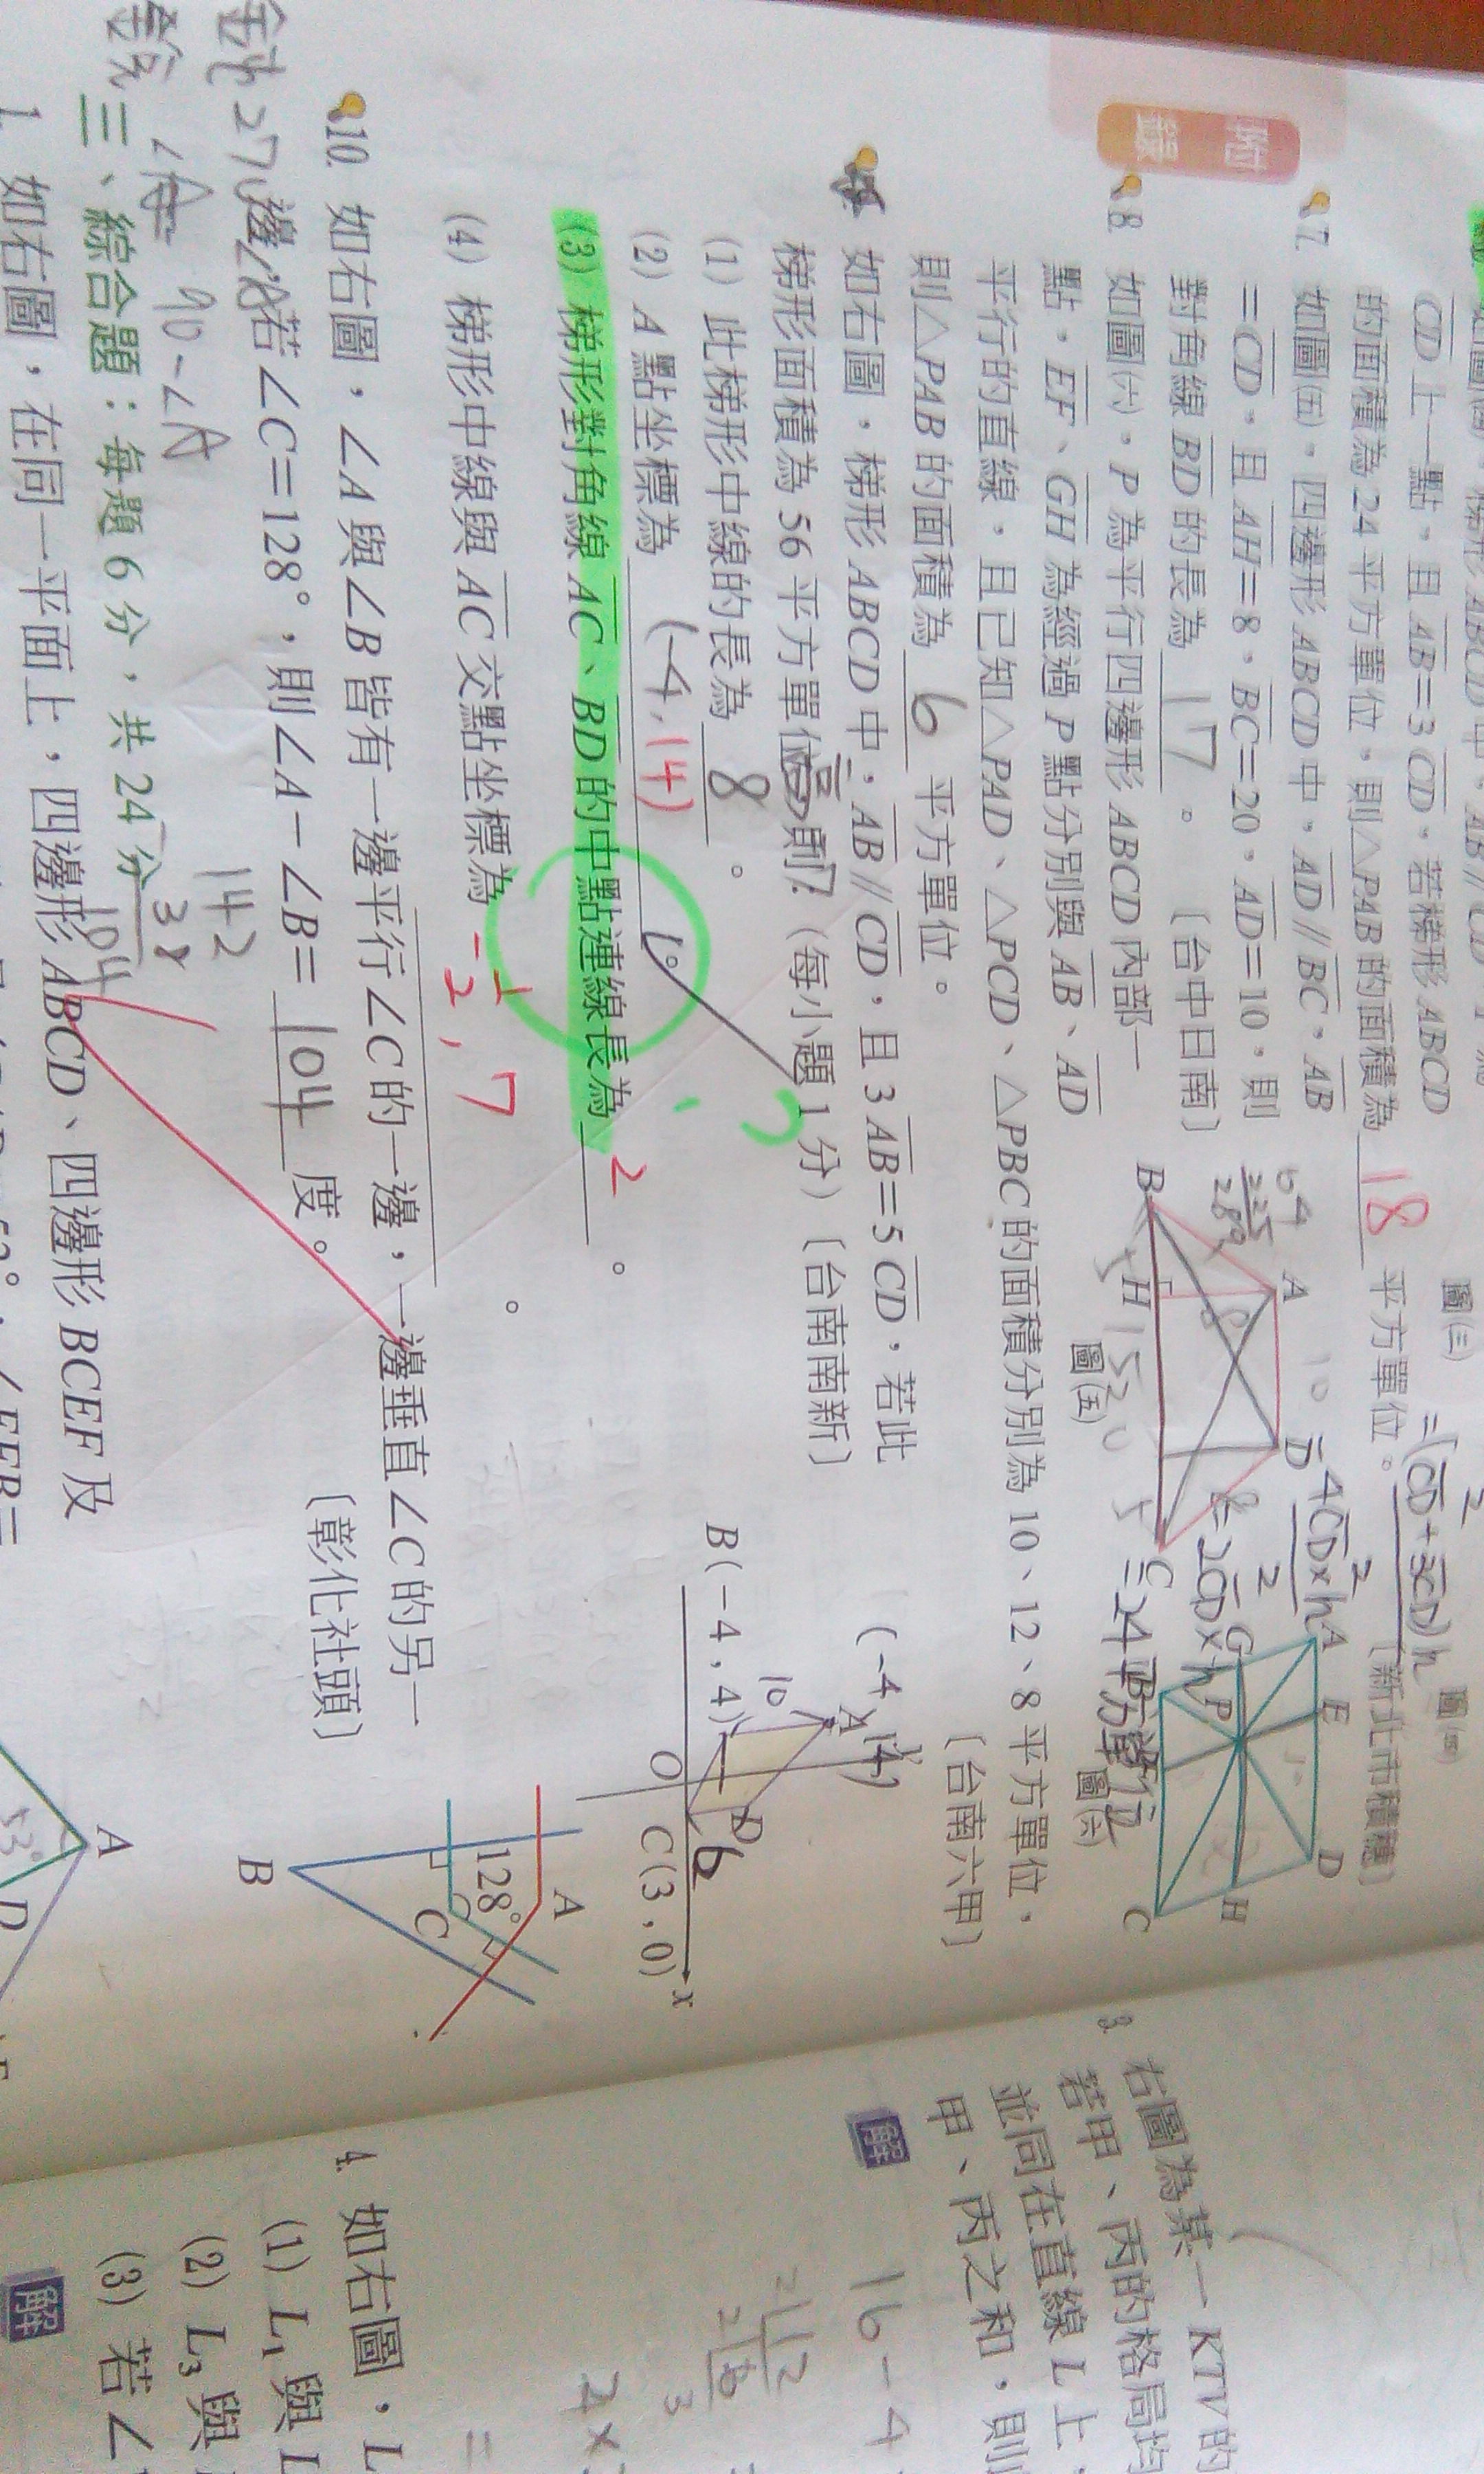 CD上一點，且AB=3CD，若梯形ABCD
的面積為24平方單位，則△PAB的面積為 18 平方單位。
附錄
7. 如圖(五)，四邊形ABCD中，AD//BC，AB
=CD，且AH=8，BC=20，AD=10，則
對角線BD的長為 17 。 〔台中日南〕
8. 如圖(六)，P為平行四邊形ABCD內部一
點，EF、GH為經過P點分別與AB、AD
平行的直線，且已知△PAD、△PCD、△PBC的面積分別為10、12、8平方單位，
則△PAB的面積為 6 平方單位。 〔台南六甲〕
如右圖，梯形ABCD中，AB//CD，且3AB=5CD，若此
梯形面積為56平方單位，則：(每小題1分)〔台南南新〕
(1) 此梯形中線的長為 8 。
(2) A點坐標為 (-4,14) 。
(3) 梯形對角線AC、BD的中點連線長為 2 。
(4) 梯形中線與AC交點坐標為 -1/2, 7 。
10. 如右圖，∠A與∠B皆有一邊平行∠C的一邊，一邊垂直∠C的另一
邊，若∠C=128°，則∠A-∠B= 104 度。 〔彰化社頭〕
90-∠A
142
38
104
三、綜合題：每題6分，共24分
1. 如右圖，在同一平面上，四邊形ABCD、四邊形BCEF及
圖(三)
圖(四)
=(CD+3CD)h
2
4CD×h
2
=2CD×h
=24平方單位
64
225
289
A
10
D
B
5
H
15
20
5
C
圖(五)
A
E
D
G
P
H
B
C
圖(六)
(-4,14)
A
10
B(-4,4)
D
6
O
C(3,0)
x
A
128°
C
B
A
53°
D
3. 右圖為某一KTV的
若甲、丙的格局均
並同在直線L上，
甲、丙之和，則
解
16-4
4. 如右圖，L
(1) L₁與L
(2) L₃與
(3) 若∠
解